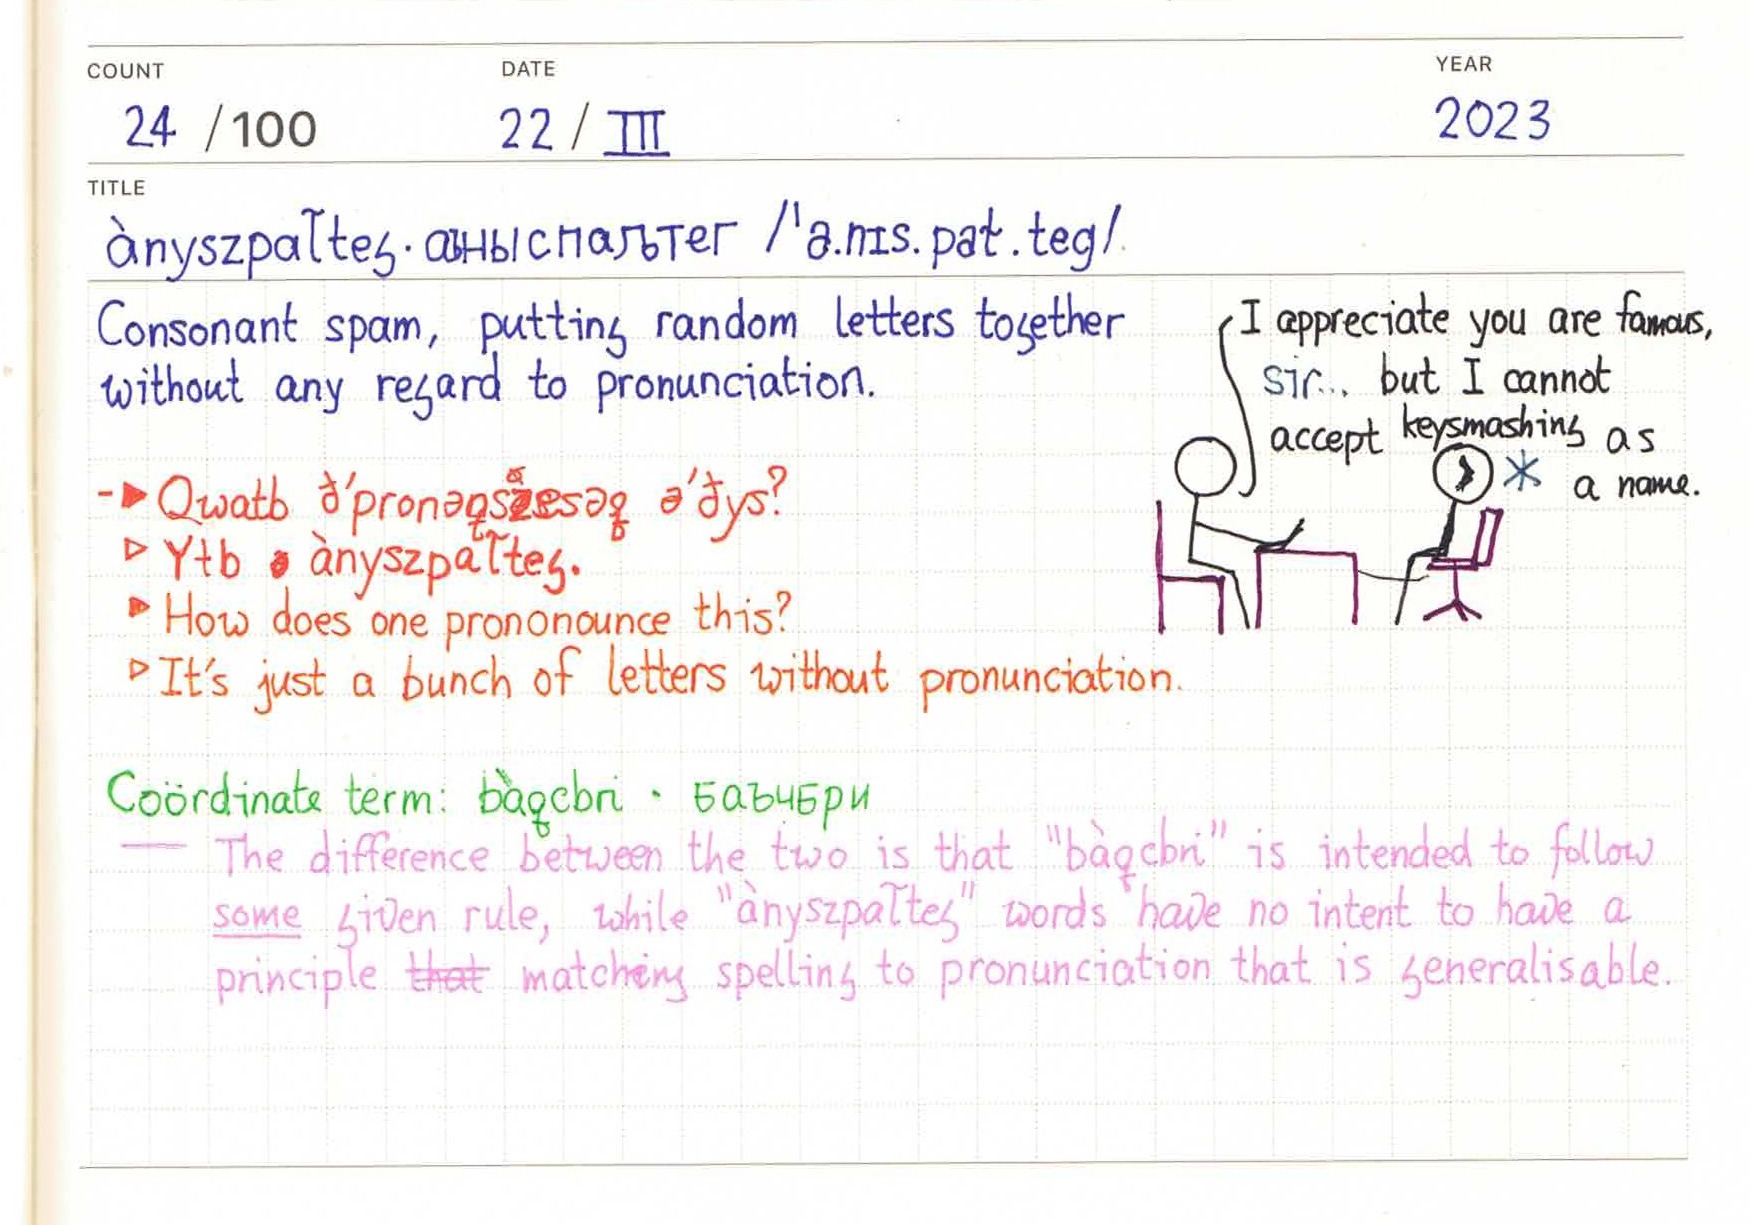 COUNT DATE YEAR
24 /100 22 / III 2023
TITLE
ànyszpal̃teg · аныспальтег /ˈə.nɪs.pat.teg/
Consonant spam, putting random letters together
without any regard to pronunciation.
I appreciate you are famous,
sir... but I cannot
accept keysmashing as
a name.
Qwatb ð'pronəqszesəq ə'ðys?
Ytb ànyszpal̃teg.
How does one prononounce this?
It's just a bunch of letters without pronunciation.
Coördinate term: bàqcbri · баъчбри
— The difference between the two is that "bàqcbri" is intended to follow
some given rule, while "ànyszpal̃teg" words have no intent to have a
principle that matching spelling to pronunciation that is generalisable.